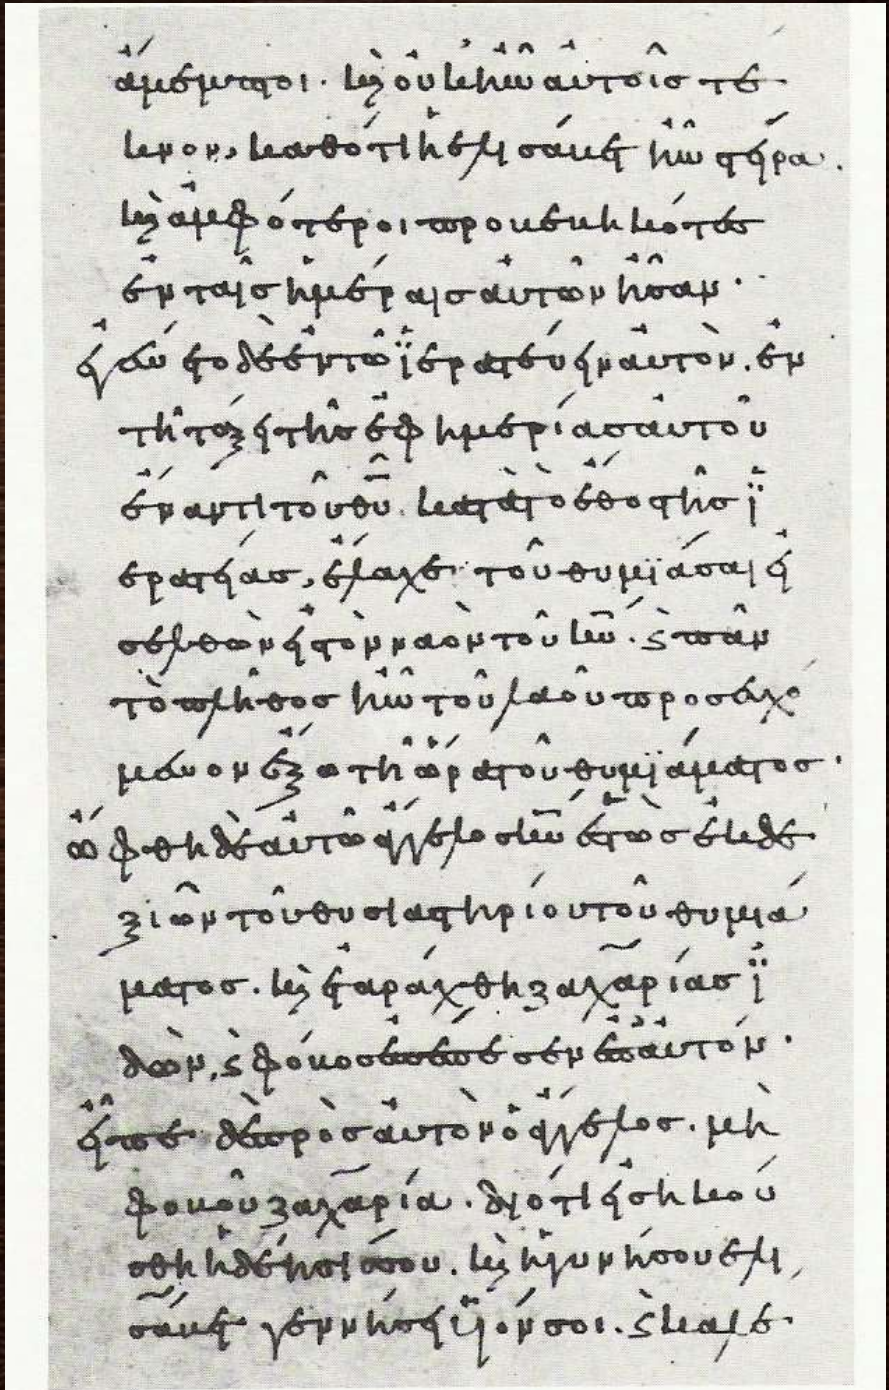 ἄμεμπτοι. καὶ οὐκ ἦν αὐτοῖς τέ
κνον, καθότι ἡ ἐλισάβετ ἦν στείρα.
καὶ ἀμφότεροι προβεβηκότες
ἐν ταῖς ἡμέραις αὐτῶν ἦσαν.
ἐγένετο δὲ ἐν τῶ ἱερατεύειν αὐτὸν. ἐν
τῆ τάξει τῆς ἐφημερίας αὐτοῦ
ἔναντι τοῦ θυ. κατὰ τὸ ἔθος τῆς ἱ
ερατείας, ἔλαχε τοῦ θυμϊάσαι εἰ
σελθὼν εἰς τὸν ναὸν τοῦ κυ. καὶ πᾶν
τὸ πλῆθος ἦν τοῦ λαοῦ προσευχό
μενον ἔξω τῆ ὥρα τοῦ θυμϊάματος.
ὤφθη δὲ αὐτῶ ἄγγελος κυ ἑστὼς ἐκ δε
ξιῶν τοῦ θυσιαστηρίου τοῦ θυμιά
ματος. καὶ ἐταράχθη ζαχαρίας ἰ
δὼν, καὶ φόβος ἐπέπεσεν ἐπ' αὐτόν.
εἶπε δὲ πρὸς αὐτὸν ὁ ἄγγελος. μὴ
φοβοῦ ζαχαρία. διότι εἰσηκού
σθη ἡ δέησίς σου. καὶ ἡ γυνή σου ἐλι
σάβετ γεννήσει υἱόν σοι. καὶ καλέ